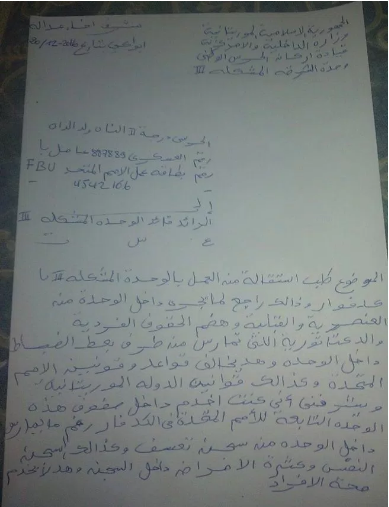 الجمهورية الاسلامية الموريتانية
وزارة الداخلية واللامركزية
قيادة أركان الحرس الوطني
وحدة الشرطة المشكلة III
شرف إخاء عدالة
بتاريخ
الحرسي درجة II ولد الداه
رقم العسكري 897839 حاصل با
رقم بطاقة عمل الامم المتحدة FBU
إلى
الرائد قائد الوحدة المشكلة III
ع س ت
الموضوع طلب استقالة من العمل بالوحدة المشكلة III با
وذالك راجع لما يجري داخل الوحدة من
العنصرية والقبلية وهضم الحقوق الفردية
والدكتاتورية التي تمارس من طرف بعض الضباط
داخل الوحدة وهذ يخالف قواعد وقوانين الامم
المتحدة وكذالك قوانين الدولة الموريتانية
و فني أني كنت أخدم داخل صفوف هذه
الوحدة التابعة للأمم المتحدة
داخل الوحدة من سجن تعسف وكذالك سجن
النفس وكثرة الامراض داخل السجن وهذ لايخدم
صحة الافراد